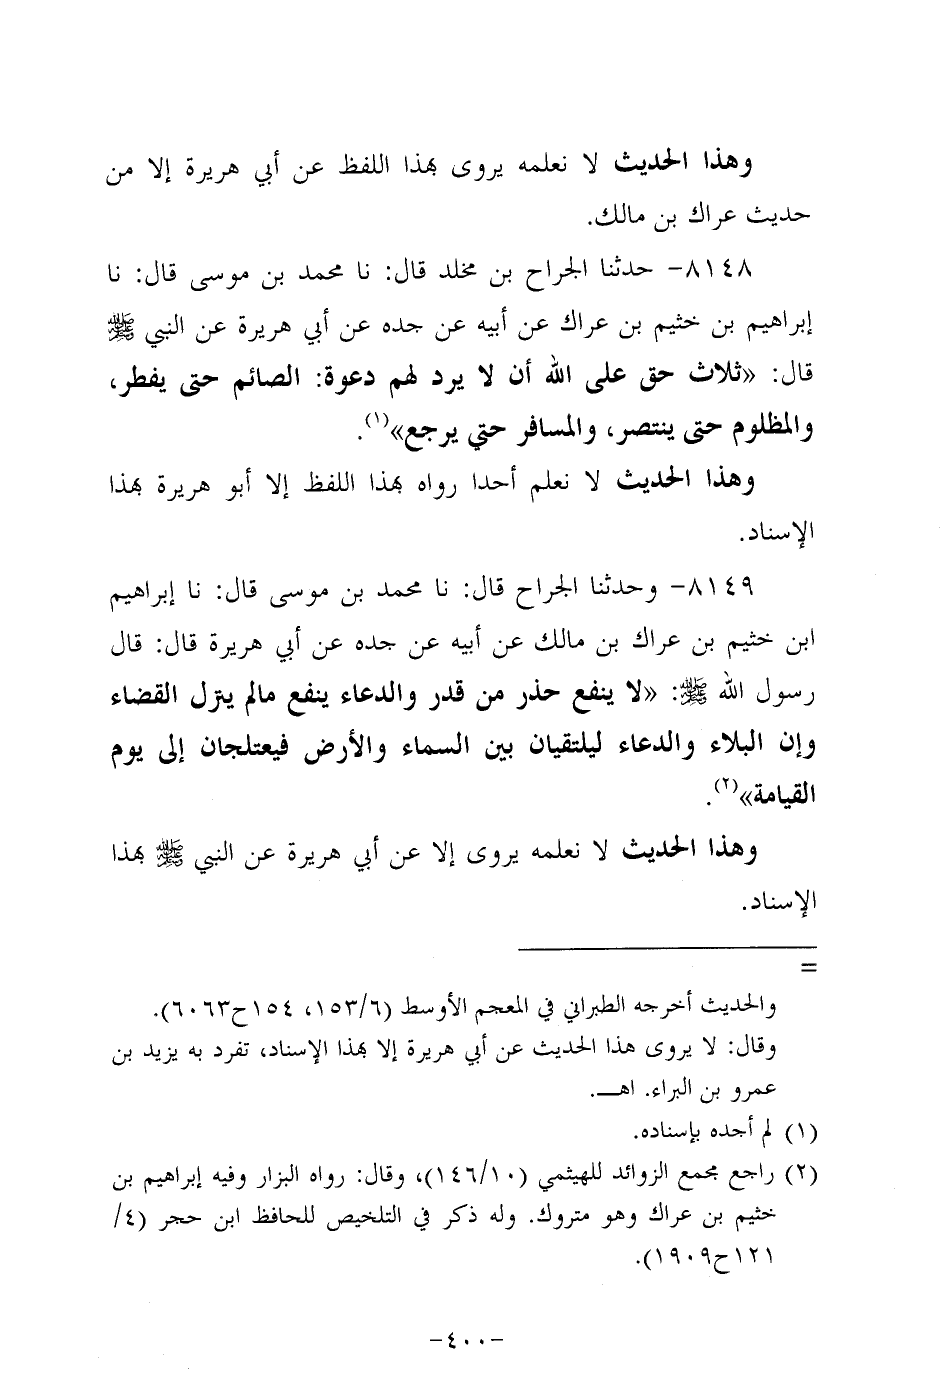 وهذا الحديث لا نعلمه يروى بهذا اللفظ عن أبي هريرة إلا من
حديث عراك بن مالك.
٨١٤٨- حدثنا الجراح بن مخلد قال: نا محمد بن موسى قال: نا
إبراهيم بن خثيم بن عراك عن أبيه عن جده عن أبي هريرة عن النبي ﷺ
قال: «ثلاث حق على الله أن لا يرد لهم دعوة: الصائم حتى يفطر،
والمظلوم حتى ينتصر، والمسافر حتي يرجع»(١).
وهذا الحديث لا نعلم أحدا رواه بهذا اللفظ إلا أبو هريرة بهذا
الإسناد.
٨١٤٩- وحدثنا الجراح قال: نا محمد بن موسى قال: نا إبراهيم
ابن خثيم بن عراك بن مالك عن أبيه عن جده عن أبي هريرة قال: قال
رسول الله ﷺ: «لا ينفع حذر من قدر والدعاء ينفع مالم ينزل القضاء
وإن البلاء والدعاء ليلتقيان بين السماء والأرض فيعتلجان إلى يوم
القيامة»(٢).
وهذا الحديث لا نعلمه يروى إلا عن أبي هريرة عن النبي ﷺ بهذا
الإسناد.
=
والحديث أخرجه الطبراني في المعجم الأوسط (١٥٣/٦، ١٥٤ح٦٠٦٣).
وقال: لا يروى هذا الحديث عن أبي هريرة إلا بهذا الإسناد، تفرد به يزيد بن
عمرو بن البراء. اهـ.
(١) لم أجده بإسناده.
(٢) راجع مجمع الزوائد للهيثمي (١٤٦/١٠)، وقال: رواه البزار وفيه إبراهيم بن
خثيم بن عراك وهو متروك. وله ذكر في التلخيص للحافظ ابن حجر (٤/
١٢١ح١٩٠٩).
-٤٠٠-